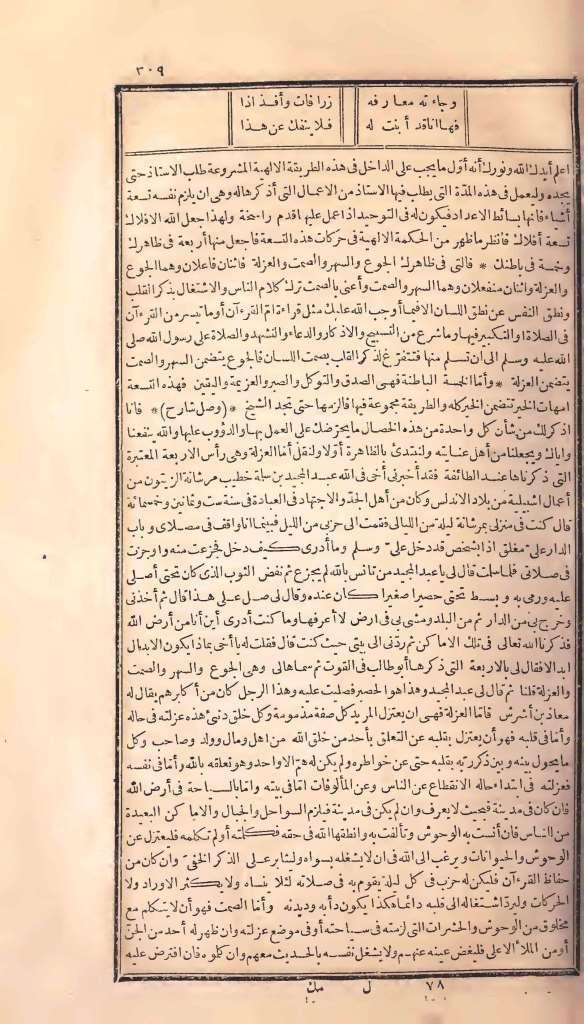 ٣٠٩
وجاءته معارفه زرافات وأفذاذا
فها اناقد أبنت له فلا ينفك عن هذا
اعلم أيدك الله ونورك أنه أول ما يجب على الداخل فى هذه الطريقة الالهية المشروعة طلب الاستاذ حتى
يجده وليعمل فى هذه المدة التى يطلب فيها الاستاذ من الاعمال التى أذكرها له وهى ان يلزم نفسه تسعة
أشياء فانها بسائط الاعداد فيكون له فى التوحيد اذا عمل عليها قدم راسخة ولهذا جعل الله الافلاك
تسعة أفلاك فانظر ما ظهر من الحكمة الالهية فى حركات هذه التسعة فاجعل منها أربعة فى ظاهرك
وخمسة فى باطنك * فالتى فى ظاهرك الجوع والسهر والصمت والعزلة فاثنان فاعلان وهما الجوع
والعزلة واثنان منفعلان وهما السهر والصمت وأعنى بالصمت ترك كلام الناس والاشتغال بذكر القلب
ونطق النفس عن نطق اللسان الا فيما أوجب الله عليك مثل قراءة أم القرءآن أو ما تيسر من القرءآن
فى الصلاة والتكبير فيها وما شرع من التسبيح والاذكار والدعاء والتشهد والصلاة على رسول الله صلى
الله عليه وسلم الى ان تسلم منها فتتفرغ لذكر القلب بصمت اللسان فالجوع يتضمن السهر والصمت
يتضمن العزلة * وأما الخمسة الباطنة فهى الصدق والتوكل والصبر والعزيمة واليقين فهذه التسعة
امهات الخير تتضمن الخير كله والطريقة مجموعة فيها فالزمها حتى تجد الشيخ *(وصل شارح)* فانا
اذكر لك من شأن كل واحدة من هذه الخصال ما يحرّضك على العمل بها والدؤوب عليها والله ينفعنا
واياك ويجعلنا من أهل عنايته ولنبتدئ بالظاهرة أولا ولنقل أما العزلة وهى رأس الاربعة المعتبرة
التى ذكرناها عند الطائفة فقد أخبرنى أخى فى الله عبد المجيد بن سلمة خطيب مرشانة الزيتون من
أعمال اشبيلية من بلاد الاندلس وكان من أهل الجد والاجتهاد فى العبادة فى سنة ست وثمانين وخمسمائة
قال كنت فى منزلى بمرشانة ليلة من الليالى فقمت الى حزبى من الليل فبينما انا واقف فى مصلاى وباب
الدار علىّ مغلق اذا بشخص قد دخل علىّ وسلم وما أدرى كيف دخل فجزعت منه واوجزت
فى صلاتى فلما سلمت قال لى يا عبد المجيد من تانس بالله لم يجزع ثم نفض الثوب الذى كان تحتى أصلى
عليه ورمى به وبسط تحتى حصيرا صغيرا كان عنده وقال لى صل على هذا قال ثم أخذنى
وخرج بى من الدار ثم من البلد ومشى بى فى ارض لا أعرفها وما كنت أدرى أين أنا من أرض الله
فذكرنا الله تعالى فى تلك الاماكن ثم ردّنى الى بيتى حيث كنت قال فقلت له يا أخى بماذا يكون الابدال
ابدالا فقال لى بالاربعة التى ذكرها أبو طالب فى القوت ثم سماها لى وهى الجوع والسهر والصمت
والعزلة قلنا ثم قال لى عبد المجيد وهذا هو الحصير فصليت عليه وهذا الرجل كان من أكابرهم يقال له
معاذ بن أشرس فاما العزلة فهى ان يعتزل المريد كل صفة مذمومة وكل خلق دنىء هذه عزلته فى حاله
وأما فى قلبه فهو أن يعتزل بقلبه عن التعلق بأحد من خلق الله من اهل ومال وولد وصاحب وكل
ما يحول بينه وبين ذكر ربه بقلبه حتى عن خواطره ولم يكن له هم الا واحد وهو تعلقه بالله وأما فى نفسه
فعزلته فى ابتداء حاله الانقطاع عن الناس وعن المألوفات اما فى بيته واما بالسياحة فى أرض الله
فان كان فى مدينة فبحيث لا يعرف وان لم يكن فى مدينة فيلزم السواحل والجبال والاماكن البعيدة
من الناس فان أنست به الوحوش وتألفت به وانطقها الله فى حقه فكلمته أو لم تكلمه فليعتزل عن
الوحوش والحيوانات ويرغب الى الله فى ان لا يشغله بسواه وليثابر على الذكر الخفىّ وان كان من
حفاظ القرءآن فليكن له حزب فى كل ليلة يقوم به فى صلاته لئلا ينساه ولا يكثر الاوراد ولا
الحركات وليرد اشتغاله الى قلبه دائما هكذا يكون دأبه وديدنه وأما الصمت فهو أن لا يتكلم مع
مخلوق من الوحوش والحشرات التى لزمته فى سياحته أو فى موضع عزلته وان ظهر له أحد من الجنّ
أو من الملأ الاعلى فليغض عينه عنهم ولا يشغل نفسه بالحديث معهم وان كلموه فان افترض عليه
٧٨ ل مك